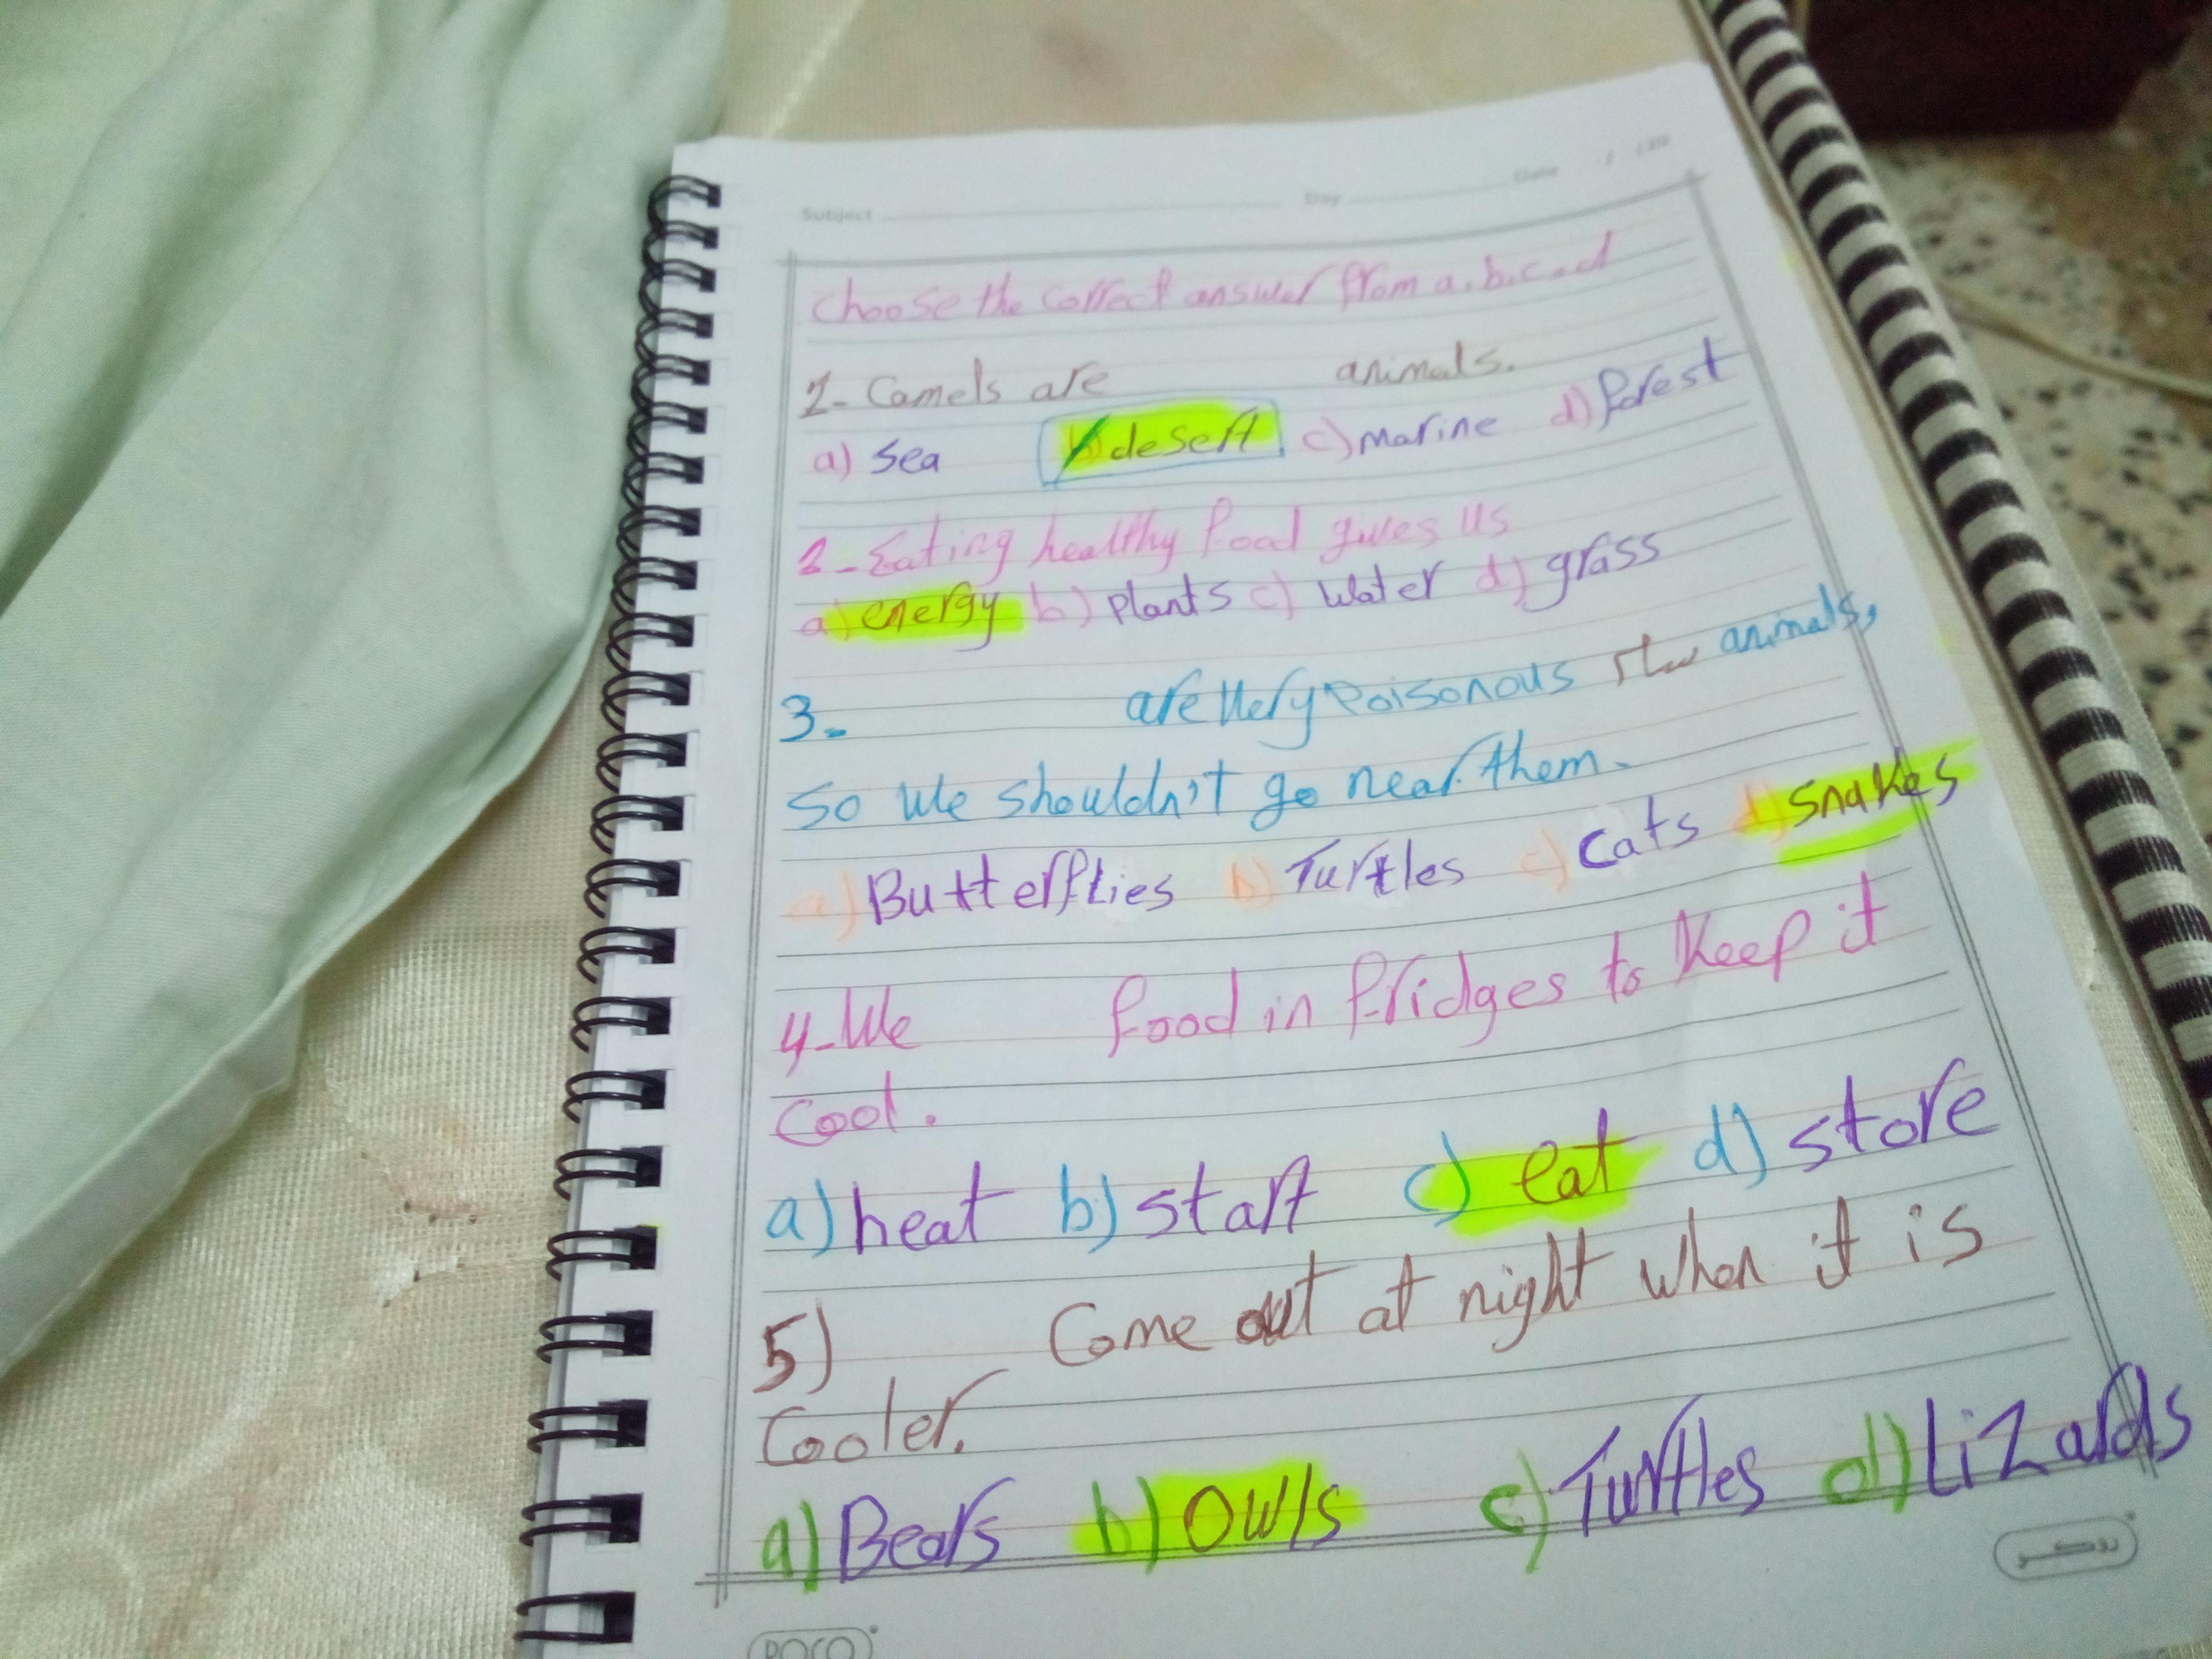 Subject Day Date / / 20
Choose the correct answer from a.b.c.d
1- Camels are animals.
a) sea b) desert c) marine d) forest
2- Eating healthy food gives us
a) energy b) plants c) water d) grass
3- are very poisonous animals,
so we shouldn't go near them.
a) Butterflies b) Turtles c) cats d) snakes
4- We food in fridges to keep it
cool.
a) heat b) start c) eat d) store
5) Come out at night when it is
cooler.
a) Bears b) Owls c) Turtles d) Lizards
روكو
ROCO